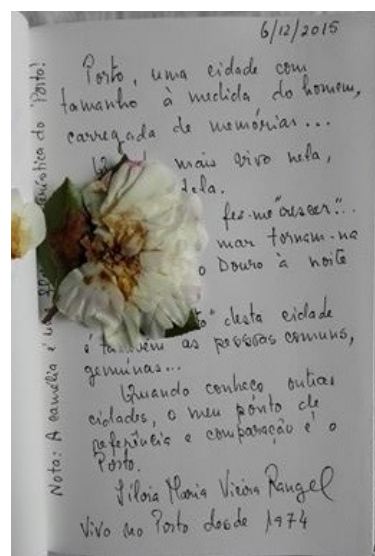 6/12/2015
Porto, uma cidade com
tamanho à medida do homem,
carregada de memórias...
mais vivo nela,
dela.
fez-me "crescer"...
mar tornam-na
o Douro à noite
" desta cidade
é também as pessoas comuns,
genuínas...
Quando conheço outras
cidades, o meu ponto de
referência e comparação é o
Porto.
Sílvia Maria Vieira Rangel
Vivo no Porto desde 1974
Nota: A camélia é do "Porto!